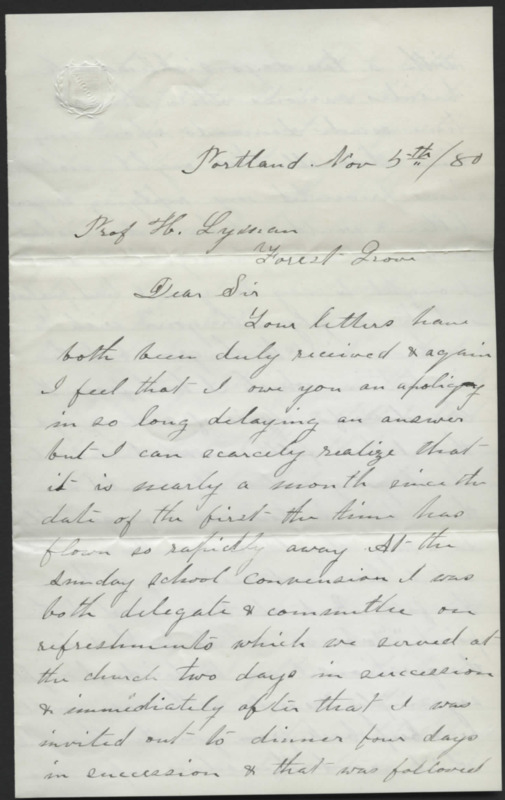 Portland Nov 5th/80
Prof H. Lyman
Forest Grove
Dear Sir
Your letters have
both been duly received & again
I feel that I owe you an apoligy
in so long delaying an answer
but I can scarcely realize that
it is nearly a month since the
date of the first the time has
flown so rapidly away At the
Sunday school convension I was
both delegate & committee on
refreshments which we served at
the church two days in succession
& immediately after that I was
invited out to dinner four days
in succession & that was followed